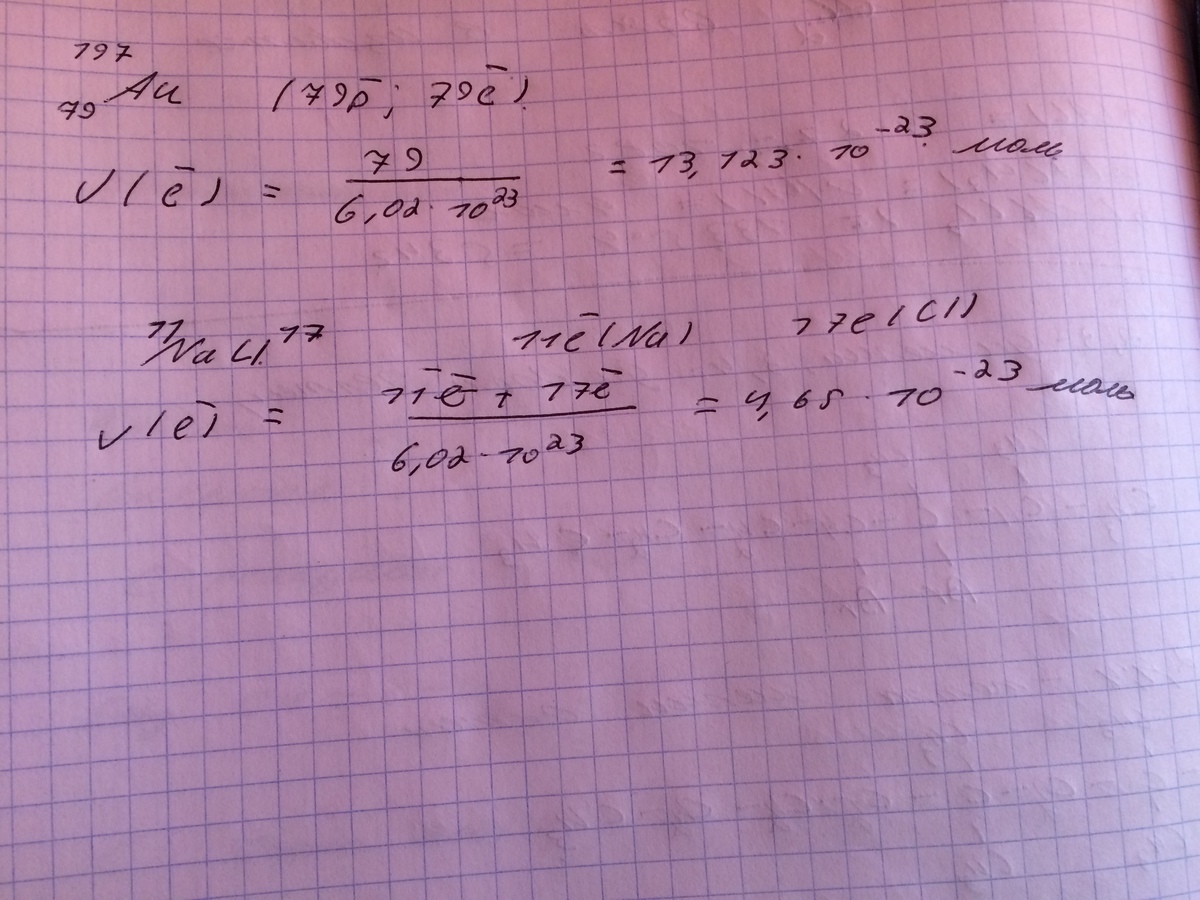 197
79 Au (79p̄; 79ē).
ν(ē) = 79 / 6,02 · 10^23 = 13,123 · 10^-23 моль
11 NaCl 17 11ē(Na) 17e(Cl)
ν(ē) = 11ē + 17ē / 6,02 · 10^23 = 4,65 · 10^-23 моль